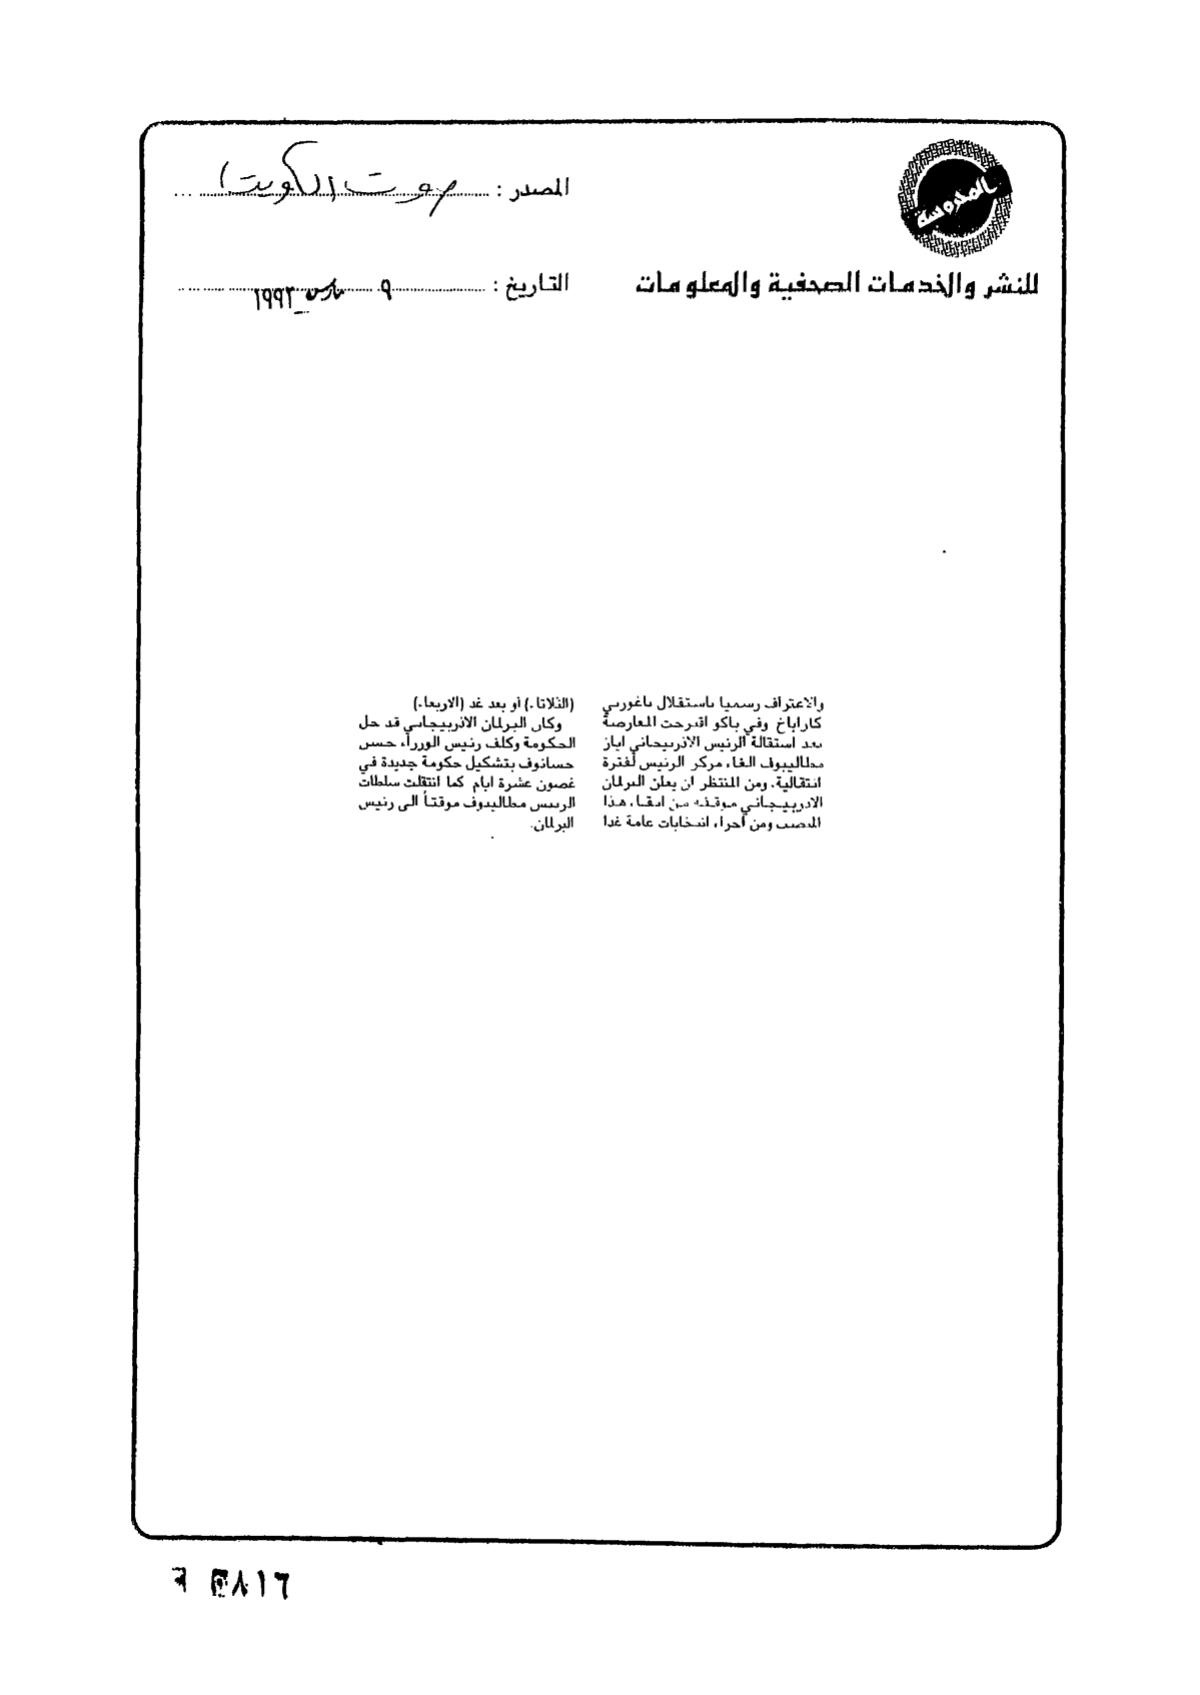 المحروسة
للنشر والخدمات الصحفية والمعلومات
المصدر : صوت الكويت
التاريخ : ٩ مارس ١٩٩٢
والاعتراف رسميا باستقلال ناغورني
كاراباخ وفي باكو اقترحت المعارضة
بعد استقالة الرئيس الاذربيجاني اياز
مطاليبوف الغاء مركز الرئيس لفترة
انتقالية. ومن المنتظر ان يعلن البرلمان
الاذربيجاني موقفه من ابقاء هذا
المنصب ومن اجراء انتخابات عامة غدا
(الثلاثاء) أو بعد غد (الاربعاء)
وكان البرلمان الاذربيجاني قد حل
الحكومة وكلف رئيس الوزراء حسن
حسانوف بتشكيل حكومة جديدة في
غضون عشرة ايام كما انتقلت سلطات
الرئيس مطاليبوف موقتاً الى رئيس
البرلمان.